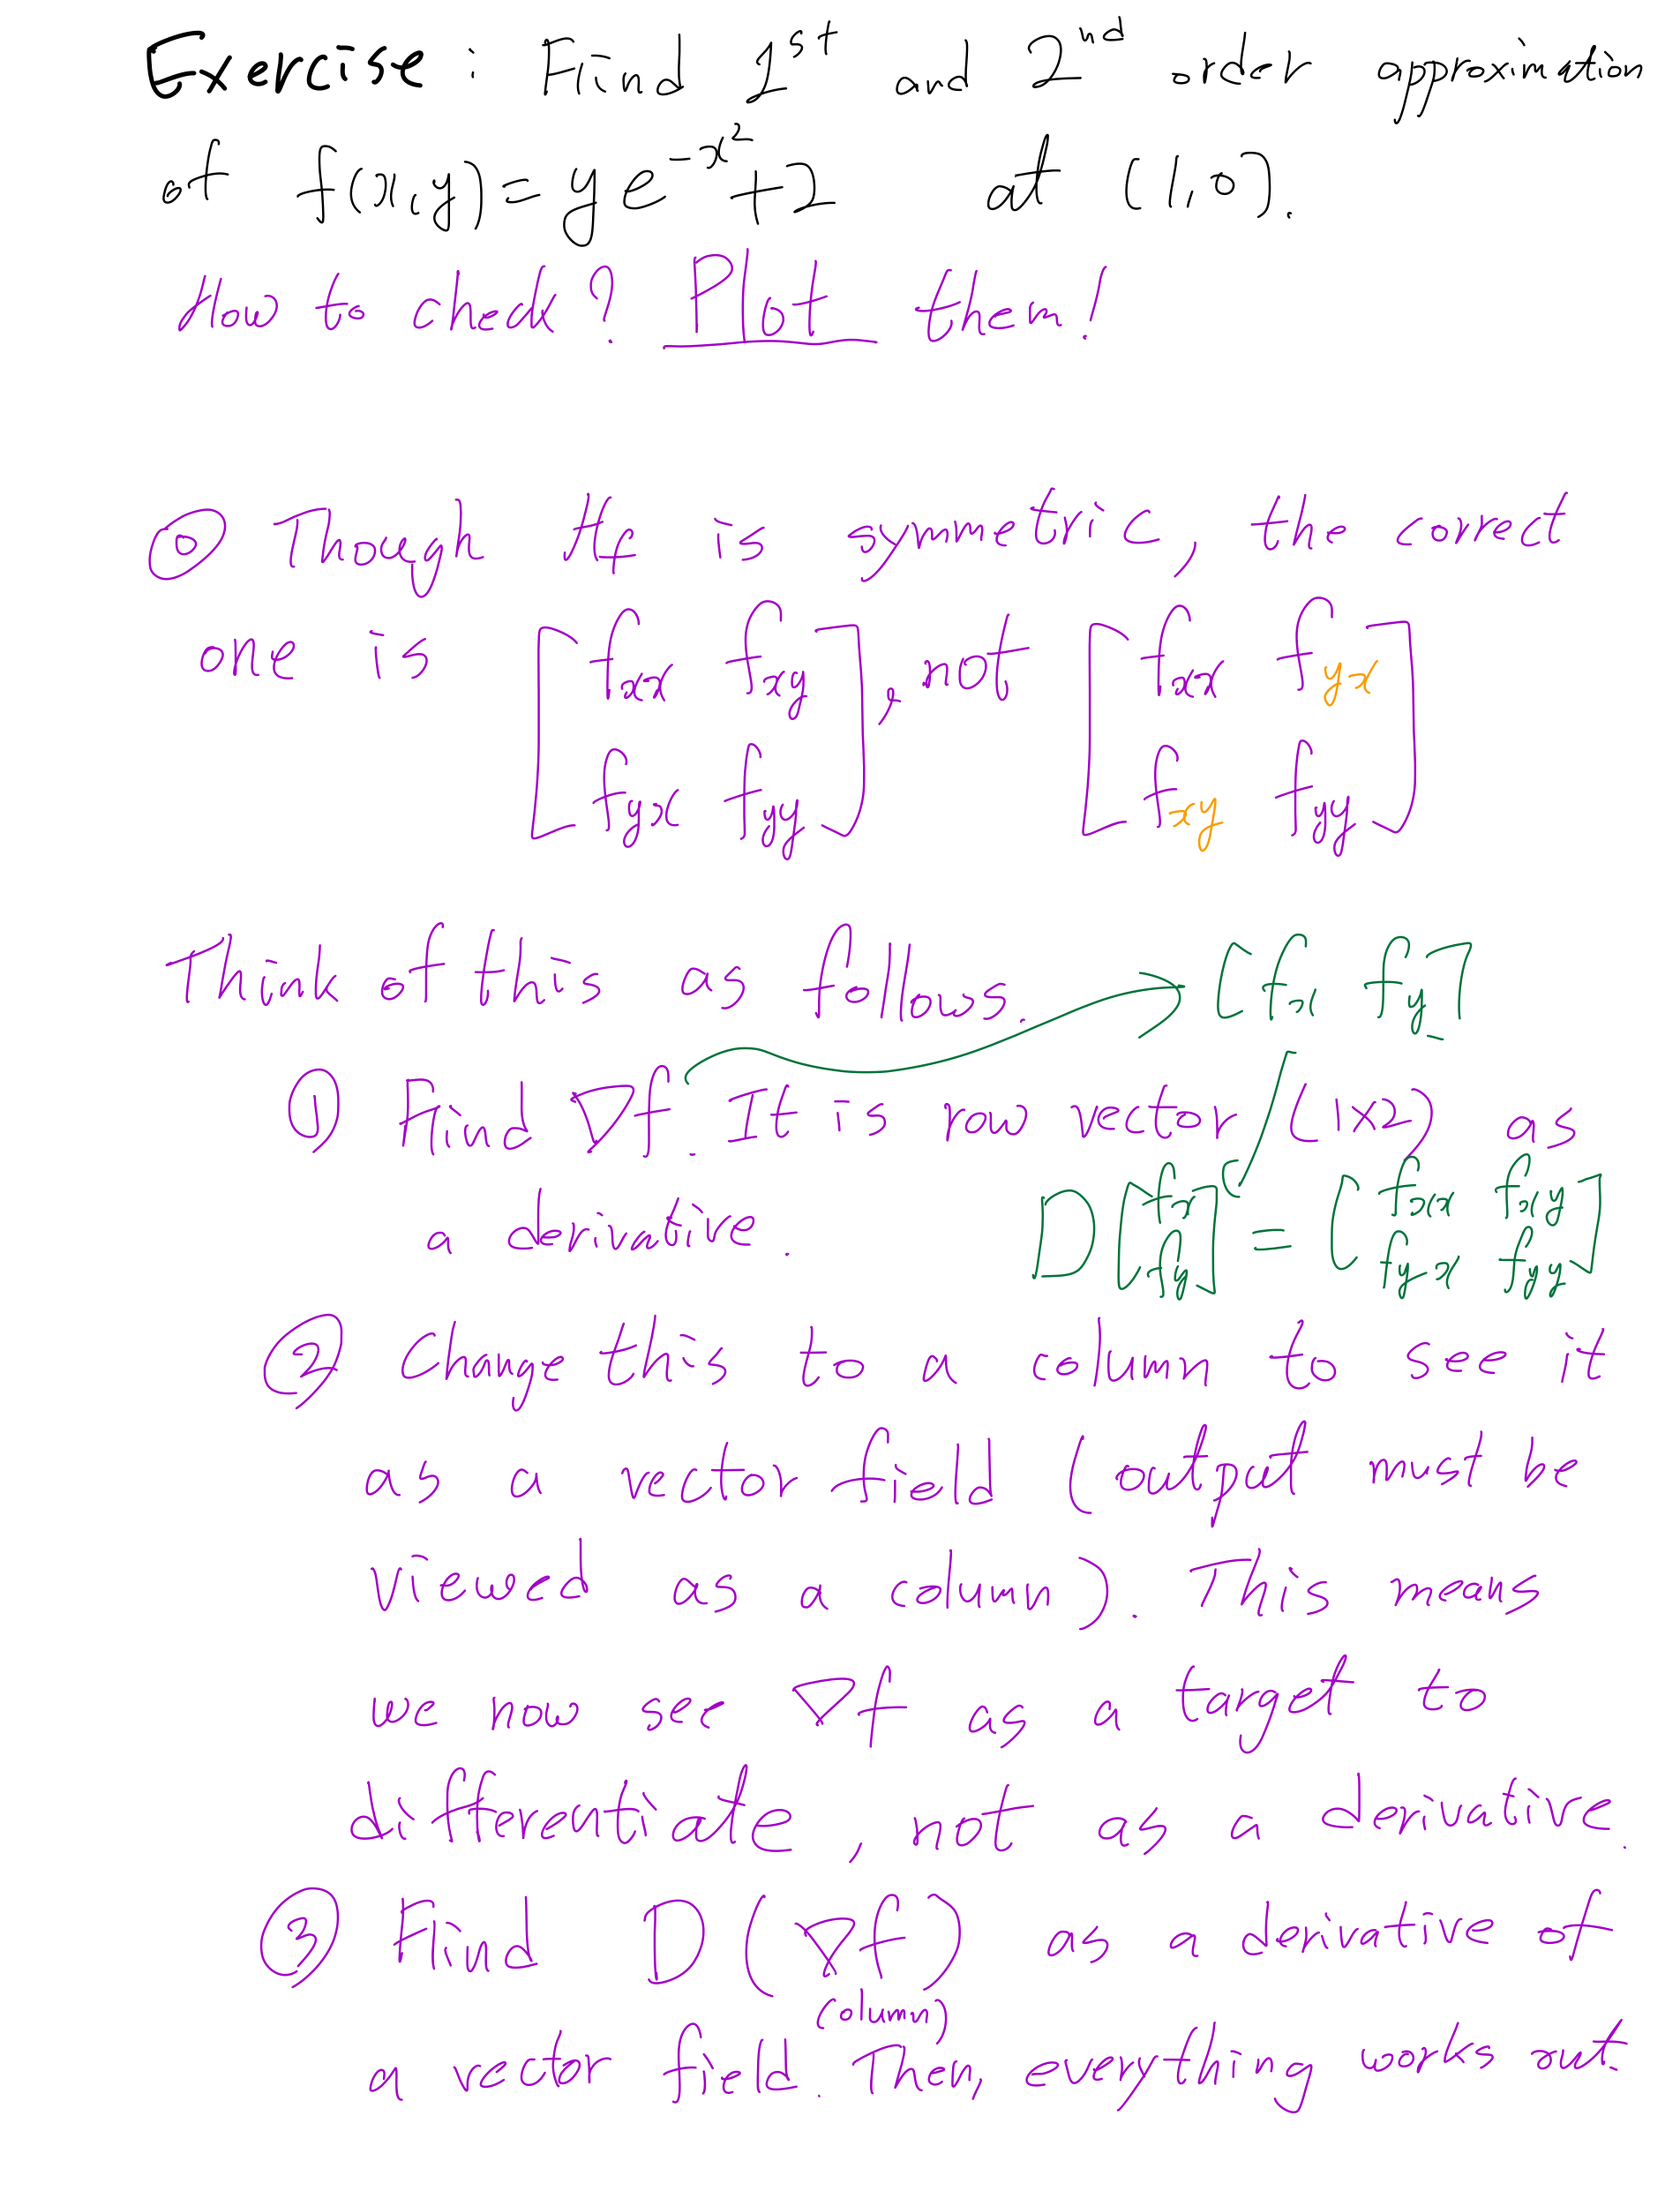 Exercise : Find 1st and 2nd order approximation
of f(x,y) = y e^{-x^2} + 2 at (1,0).
How to check? Plot them!
⊙ Though Hf is symmetric, the correct
one is [ fxx fxy ; fyx fyy ], not [ fxx fyx ; fxy fyy ]
Think of this as follows. → [fx fy]
① Find ∇f. It is row vector (1×2) as
a derivative. D[ fx ; fy ] = [ fxx fxy ; fyx fyy ]
② Change this to a column to see it
as a vector field (output must be
viewed as a column). This means
we now see ∇f as a target to
differentiate, not as a derivative.
③ Find D(∇f) as a derivative of
(column)
a vector field. Then, everything works out.